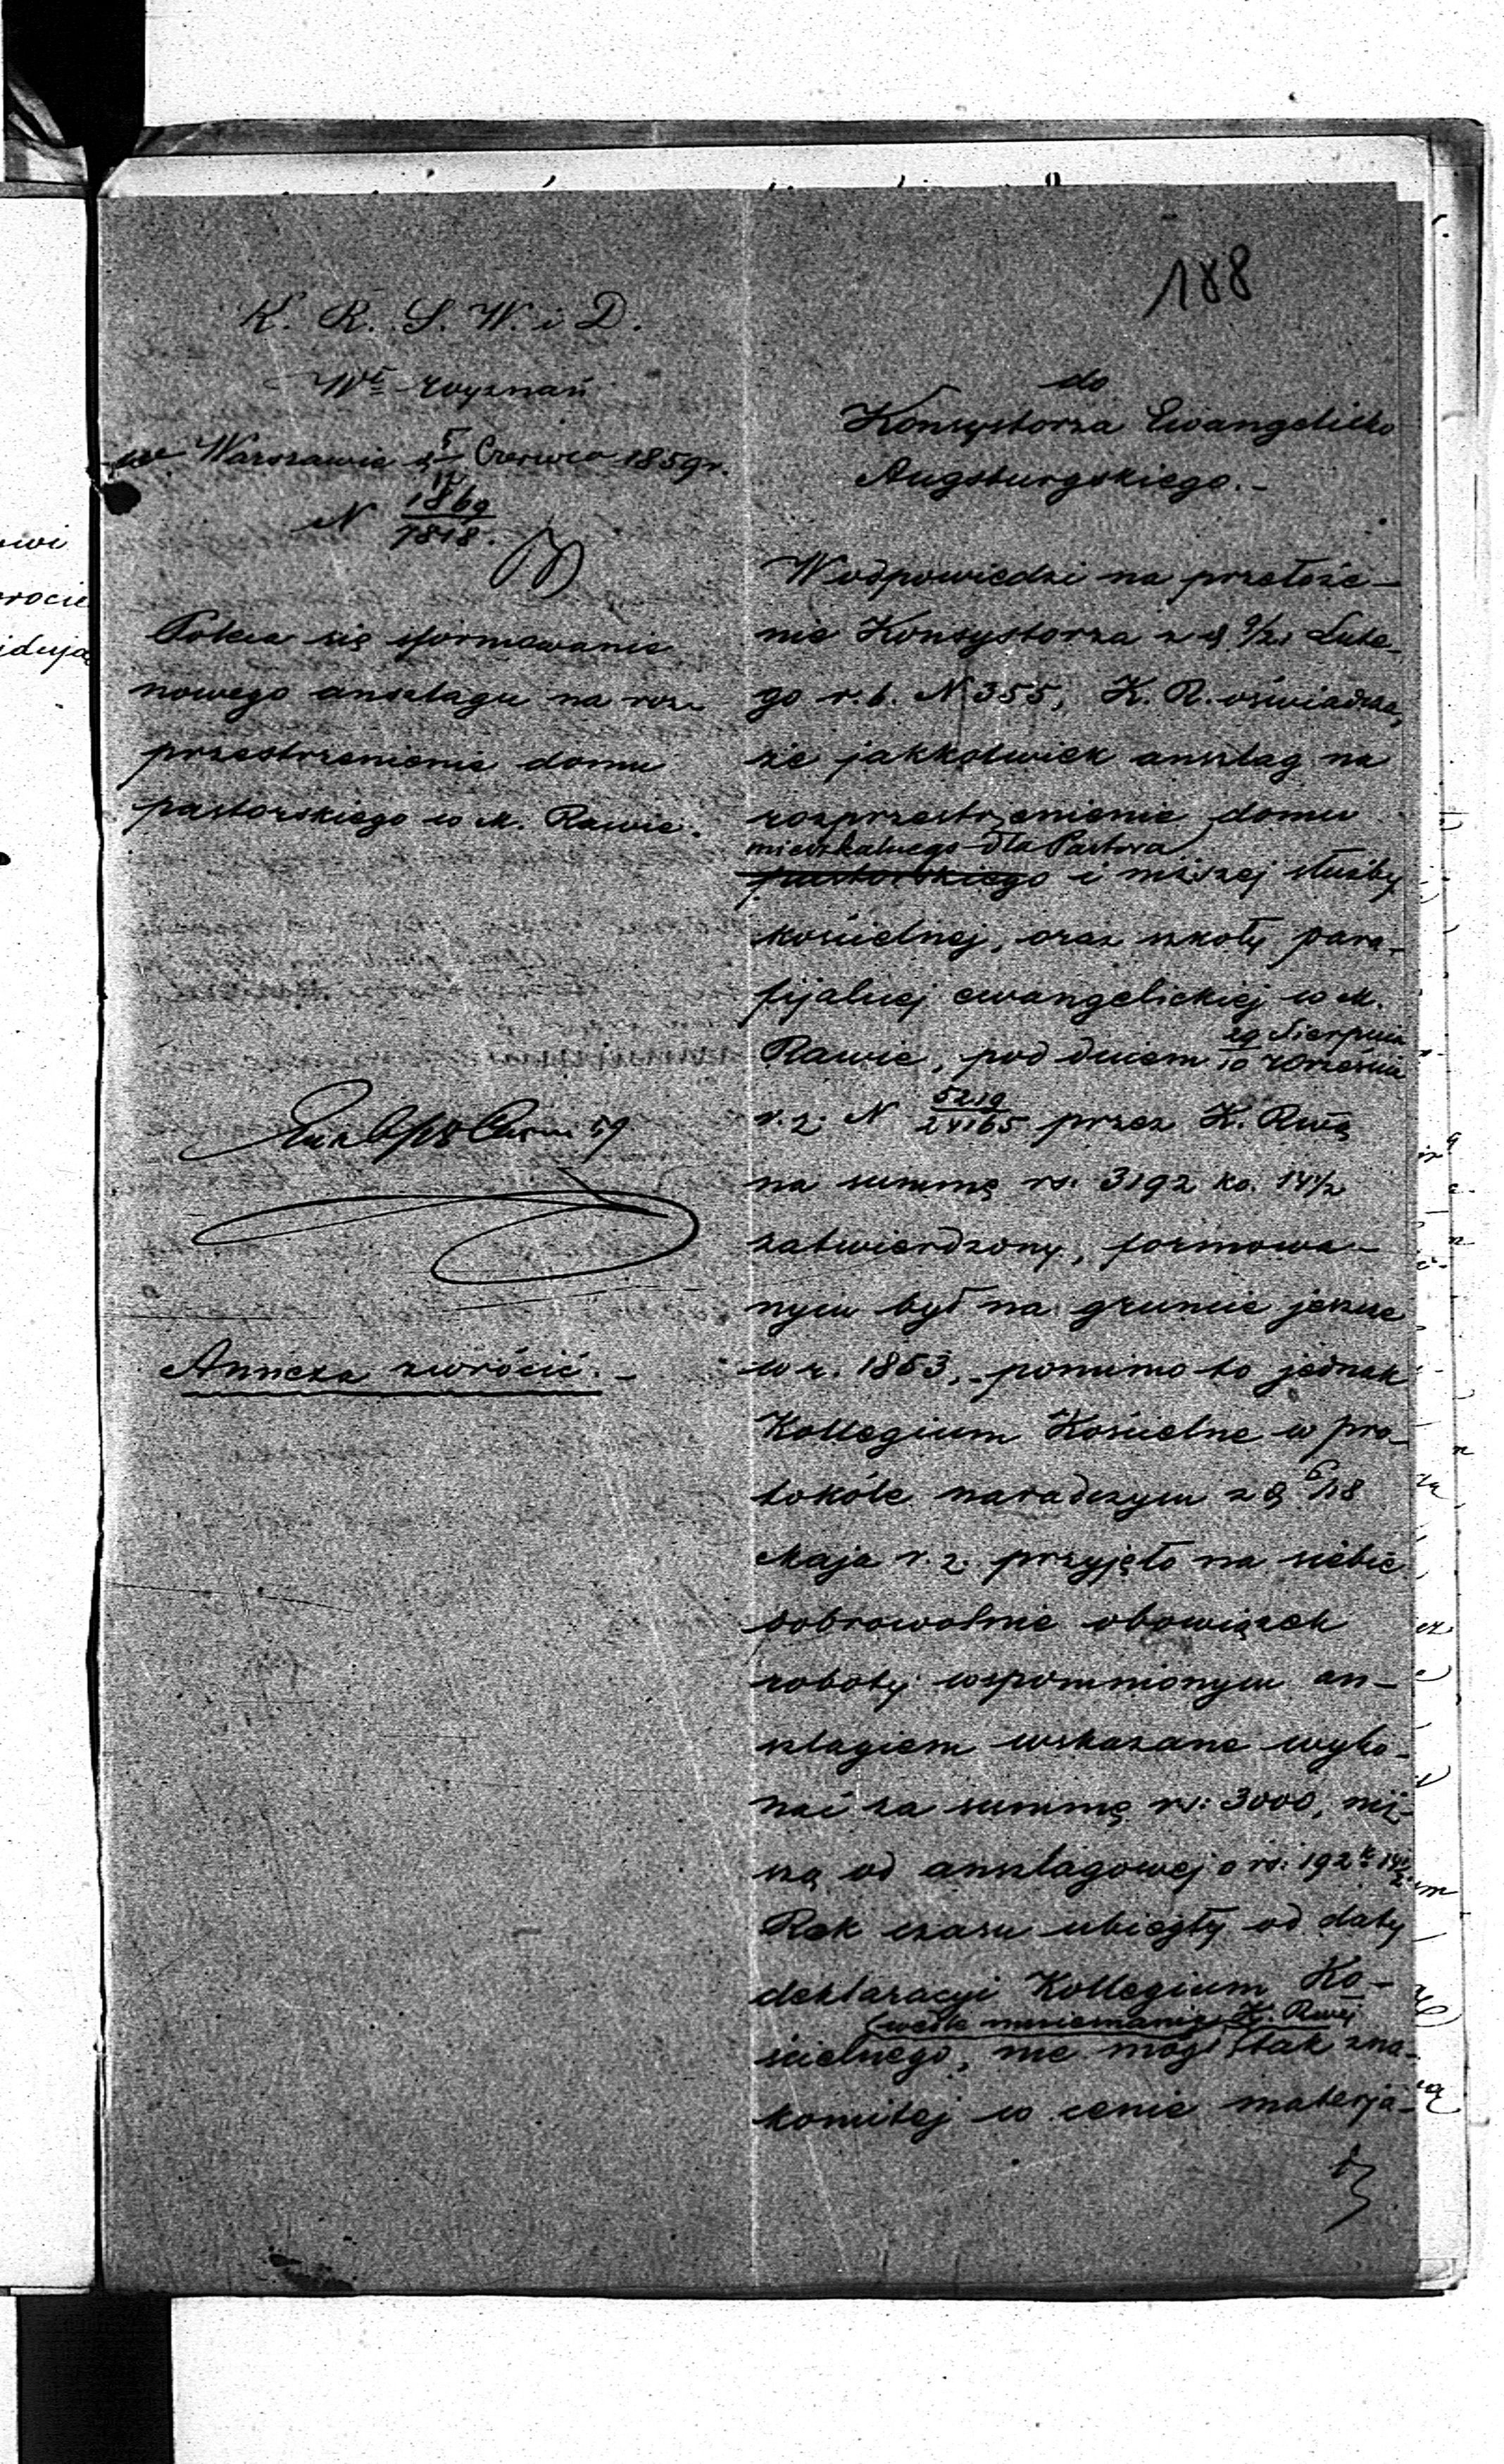 188
K. R. S. W. i D.
Wł. wyznań
w Warszawie d 5/17 Czerwca 1859 r.
N 1869/7818.
Poleca się sformowanie
nowego anszlagu na roz-
przestrzenienie domu
pastorskiego w M. Rawie.
59
Annexa zwrócić. -
do
Konsystorza Ewangelicko
Augsburgskiego. -
W odpowiedzi na przełoże-
nie Konsystorza z d 9/21 Lute-
go r. b. N 355, K. R. oświadcza,
że jakkolwiek anszlag na
rozprzestrzenienie domu
mieszkalnego dla Pastora
pastorskiego i niższej służby
kościelnej, oraz szkoły para-
fijalnej ewangelickiej w M.
Rawie, pod dniem 29 Sierpnia/10 Września
r. z. N 5219/24165 przez K. Rwą
na summę rs. 3192 ko. 14 1/2
zatwierdzony, formowa-
nym był na gruncie jeszcze
w r. 1853, pomimo to jednak
Kollegium Kościelne w pro-
tokóle naradczym z d 6/18
Maja r. z. przyjęło na siebie
dobrowolnie obowiązek
roboty wspomnionym an-
szlagiem wskazane wyko-
nać za summę rs: 3000, niż-
szą od anszlagowej o rs: 192 k 14 1/2.
Rok czasu ubiegły od daty
deklaracyi Kollegium Ko-
(wedle mniemania K. Rwej
ścielnego, nie mógł tak zna-
komitej w cenie materja-